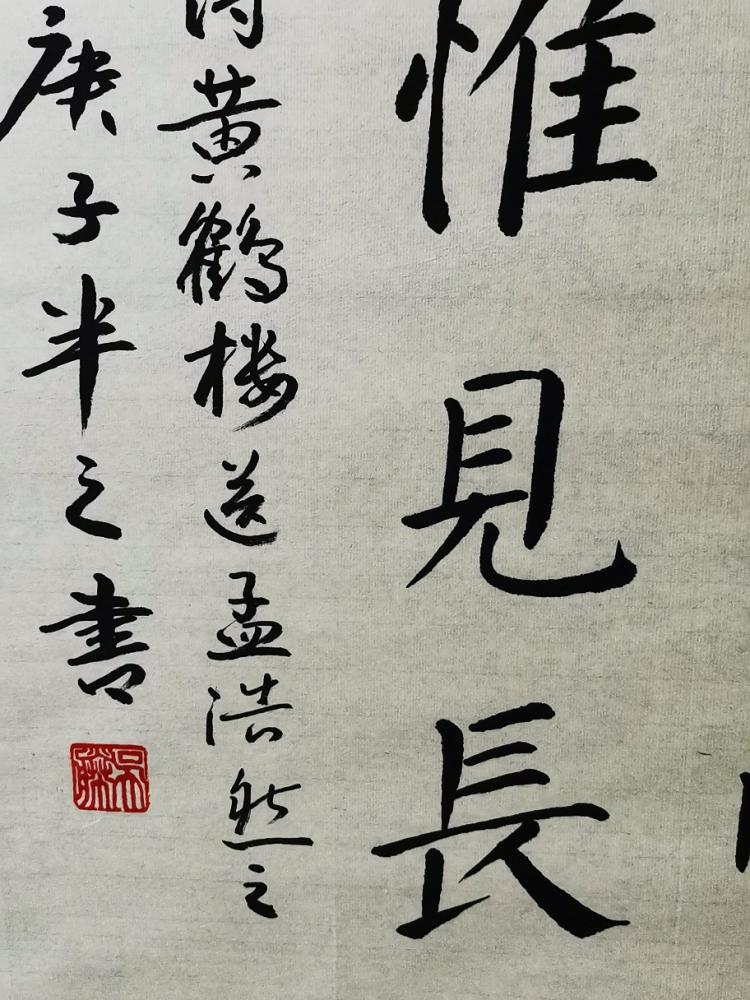 惟見長
黄鶴楼送孟浩然之
庚子半之書